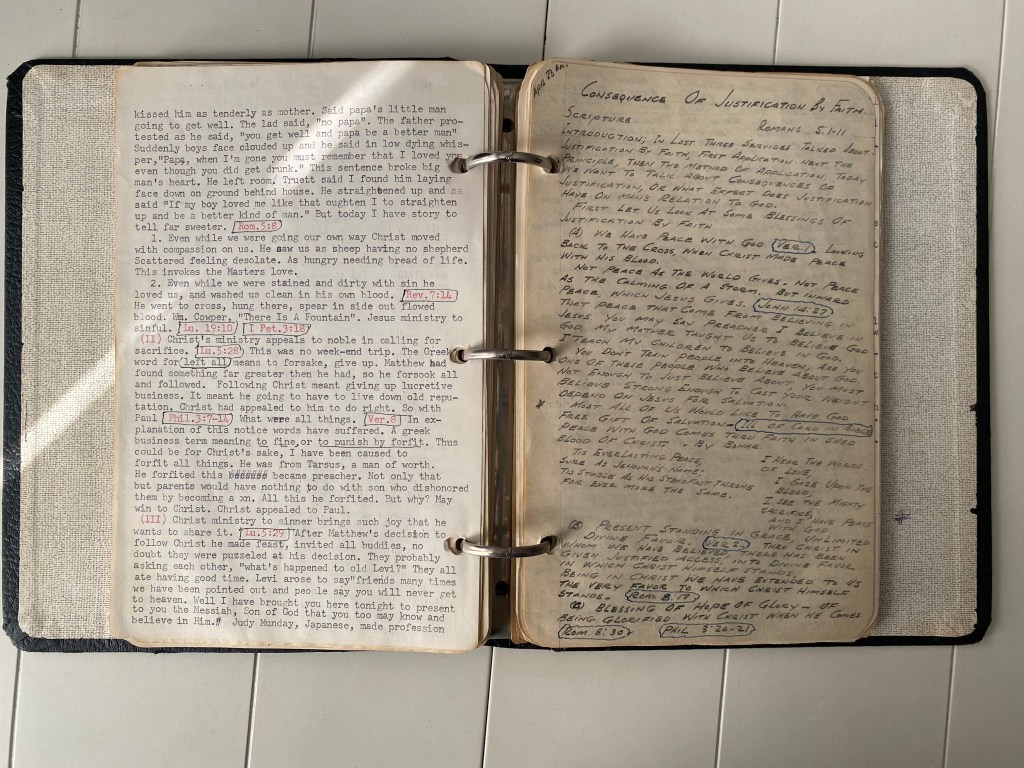 kissed him as tenderly as mother. Said papa's little man
going to get well. The lad said, "no papa". The father pro-
tested as he said, "you get well and papa be a better man"
Suddenly boys face clouded up and he said in low dying whis-
per,"Papa, when I'm gone you must remember that I loved you
even though you did get drunk." This sentence broke big
man's heart. He left room. Truett said I found him laying
face down on ground behind house. He straightened up and
said "If my boy loved me like that oughten I to straighten
up and be a better kind of man." But today I have story to
tell far sweeter. Rom.5:8
1. Even while we were going our own way Christ moved
with compassion on us. He saw us as sheep having no shepherd
Scattered feeling desolate. As hungry needing bread of life.
This invokes the Masters love.
2. Even while we were stained and dirty with sin he
loved us, and washed us clean in his own blood. Rev.7:14
He went to cross, hung there, spear in side out flowed
blood. Wm. Cowper, "There Is A Fountain". Jesus ministry to
sinful. Lu. 19:10 I Pet.3:18
(II) Christ's ministry appeals to noble in calling for
sacrifice. Lu.5:28 This was no week-end trip. The Greek
word for left all means to forsake, give up. Matthew had
found something far greater then he had, so he forsook all
and followed. Following Christ meant giving up lucretive
business. It meant he going to have to live down old repu-
tation. Christ had appealed to him to do right. So with
Paul Phil.3:7-14 What were all things. Ver.8 In ex-
planation of this notice words have suffered. A greek
business term meaning to fine,or to punish by forfit. Thus
could be for Christ's sake, I have been caused to
forfit all things. He was from Tarsus, a man of worth.
He forfited this became preacher. Not only that
but parents would have nothing to do with son who dishonored
them by becoming a xn. All this he forfited. But why? May
win to Christ. Christ appealed to Paul.
(III) Christ ministry to sinner brings such joy that he
wants to share it. Lu.5:29 After Matthew's decision to
follow Christ he made feast, invited all buddies, no
doubt they were puzzeled at his decision. They probably
asking each other, "what's happened to old Levi?" They all
ate having good time. Levi arose to say"friends many times
we have been pointed out and peo le say you will never get
to heaven. Well I have brought you here tonight to present
to you the Messiah, Son of God that you too may know and
believe in Him.# Judy Munday, Japanese, made profession
Consequence Of Justification By Faith
Scripture Romans 5:1-11
Introduction; In Last Three Services Talked About
Justification By Faith; First Application Next The
Principle, Then The Method Of Application. Today
We Want To Talk About Consequences Of
Justification, Or What Effect Does Justification
Have On Man's Relation To God.
First Let Us Look At Some Blessings Of
Justification By Faith
(A) We Have Peace With God Ver. 1 Looking
Back To The Cross, When Christ Made Peace
With His Blood.
Not Peace As The World Gives. Not Peace
As The Calming Of A Storm, But Inward
Peace, Which Jesus Gives. John 14:27
That Peace That Come From Believing In
Jesus. You May Say Preacher I Believe In
God, My Mother Taught Us To Believe God
I Teach My Children To Believe In God.
You Dont Train People Into Heaven, Are You
One Of These People Who Believe About God.
Not Enough To Just Believe About You Must
Believe Strong Enough To Cast Your Weight
Depend On Jesus For Salvation.
Most All Of Us Would Like To Have God
Free Gift Of Salvation- Ill. Of Card In Bible
Peace With God Comes Thru Faith In Shed
Blood Of Christ. - By Bonar
Tis Everlasting Peace,
Sure As Jehovah's Name;
Tis Stable As His Stedfast Throne
For Ever More The Same.
I Hear The Words
Of Love,
I Gaze Upon The
Blood,
I See The Mighty
Sacrifice,
And I Have Peace
With God
(B) Present Standing In Grace, Unlimited
Divine Favor. Ver. 2 Thru Christ In
Whom We Have Believed There Has Been
Given Justified Access, Into Divine Favor
In Which Christ Himself Stands.
Being In Christ We Have Extended To Us
The Very Favor To Which Christ Himself
Stands- Rom. 8:17
(C) Blessing Of Hope Of Glory - Of
Being Glorified With Christ When He Comes
Rom. 8:30 Phil 3:20-21